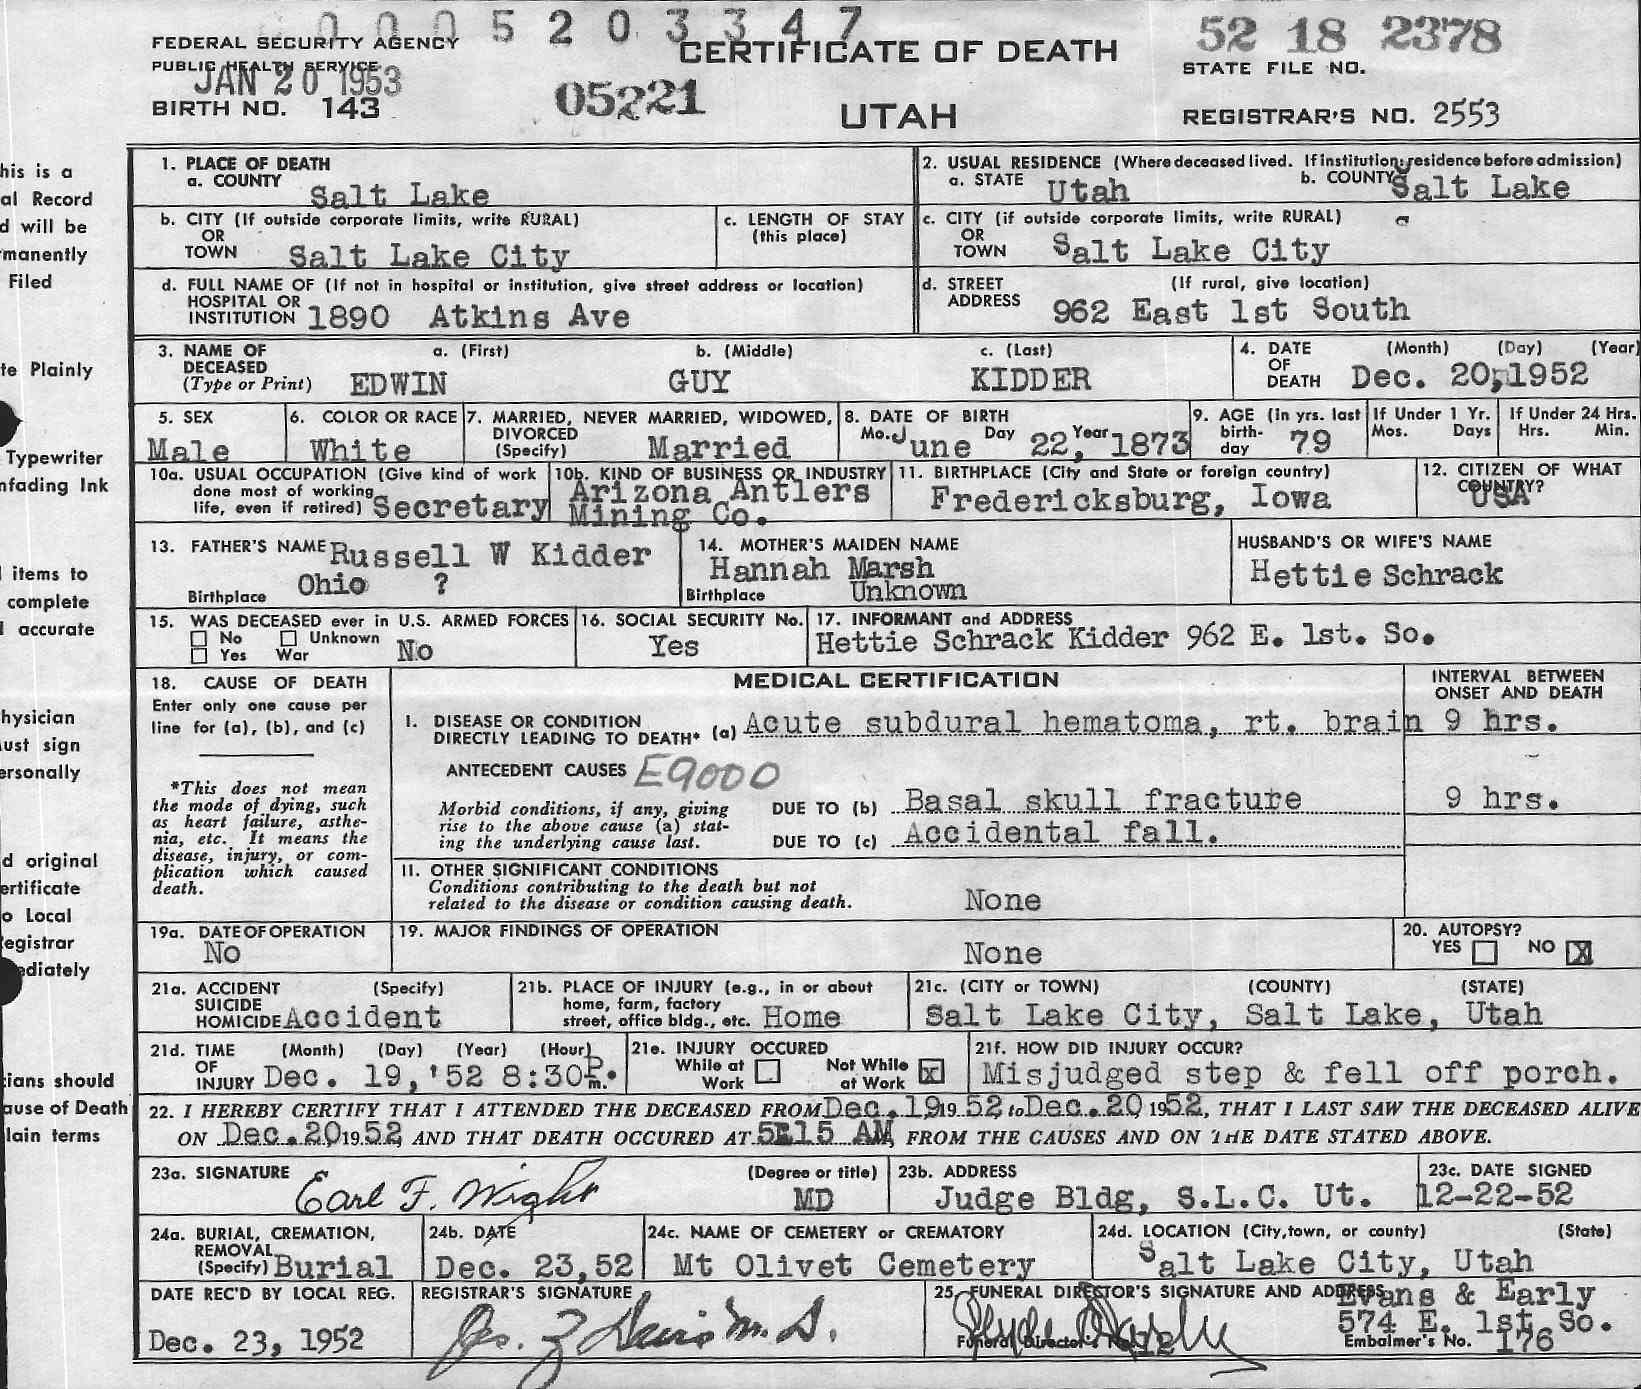 0005203347
52 18 2378
FEDERAL SECURITY AGENCY
PUBLIC HEALTH SERVICE
JAN 20 1953
CERTIFICATE OF DEATH
STATE FILE NO.
BIRTH NO. 143
05221
UTAH
REGISTRAR'S NO. 2553
his is a
al Record
d will be
manently
Filed
te Plainly
Typewriter
nfading Ink
items to
complete
accurate
hysician
ust sign
ersonally
d original
ertificate
o Local
egistrar
ediately
cians should
ause of Death
lain terms
1. PLACE OF DEATH
a. COUNTY Salt Lake
2. USUAL RESIDENCE (Where deceased lived. If institution: residence before admission)
a. STATE Utah b. COUNTY Salt Lake
b. CITY (If outside corporate limits, write RURAL)
OR
TOWN Salt Lake City
c. LENGTH OF STAY
(this place)
c. CITY (if outside corporate limits, write RURAL)
OR
TOWN Salt Lake City
d. FULL NAME OF (If not in hospital or institution, give street address or location)
HOSPITAL OR
INSTITUTION 1890 Atkins Ave
d. STREET (If rural, give location)
ADDRESS 962 East 1st South
3. NAME OF DECEASED (Type or Print)
a. (First) b. (Middle) c. (Last)
EDWIN GUY KIDDER
4. DATE OF DEATH (Month) (Day) (Year)
Dec. 20, 1952
5. SEX
Male
6. COLOR OR RACE
White
7. MARRIED, NEVER MARRIED, WIDOWED,
DIVORCED
(Specify) Married
8. DATE OF BIRTH
Mo. June Day 22, Year 1873
9. AGE (in yrs. last
birth-
day 79
If Under 1 Yr.
Mos. Days
If Under 24 Hrs.
Hrs. Min.
10a. USUAL OCCUPATION (Give kind of work
done most of working
life, even if retired) Secretary
10b. KIND OF BUSINESS OR INDUSTRY
Arizona Antlers
Mining Co.
11. BIRTHPLACE (City and State or foreign country)
Fredericksburg, Iowa
12. CITIZEN OF WHAT
COUNTRY?
USA
13. FATHER'S NAME Russell W Kidder
Birthplace Ohio ?
14. MOTHER'S MAIDEN NAME
Hannah Marsh
Birthplace Unknown
HUSBAND'S OR WIFE'S NAME
Hettie Schrack
15. WAS DECEASED ever in U.S. ARMED FORCES
No Unknown
Yes War No
16. SOCIAL SECURITY No.
Yes
17. INFORMANT and ADDRESS
Hettie Schrack Kidder 962 E. 1st. So.
18. CAUSE OF DEATH
Enter only one cause per
line for (a), (b), and (c)
*This does not mean
the mode of dying, such
as heart failure, asthe-
nia, etc. It means the
disease, injury, or com-
plication which caused
death.
MEDICAL CERTIFICATION
INTERVAL BETWEEN
ONSET AND DEATH
I. DISEASE OR CONDITION
DIRECTLY LEADING TO DEATH* (a) Acute subdural hematoma, rt. brain 9 hrs.
ANTECEDENT CAUSES E9000
Morbid conditions, if any, giving
rise to the above cause (a) stat-
ing the underlying cause last.
DUE TO (b) Basal skull fracture 9 hrs.
DUE TO (c) Accidental fall.
II. OTHER SIGNIFICANT CONDITIONS
Conditions contributing to the death but not
related to the disease or condition causing death. None
19a. DATE OF OPERATION
No
19. MAJOR FINDINGS OF OPERATION
None
20. AUTOPSY?
YES NO X
21a. ACCIDENT (Specify)
SUICIDE
HOMICIDE Accident
21b. PLACE OF INJURY (e.g., in or about
home, farm, factory
street, office bldg., etc. Home
21c. (CITY or TOWN) (COUNTY) (STATE)
Salt Lake City, Salt Lake, Utah
21d. TIME (Month) (Day) (Year) (Hour)
OF
INJURY Dec. 19, '52 8:30 P. m.
21e. INJURY OCCURED
While at Work Not While at Work X
21f. HOW DID INJURY OCCUR?
Misjudged step & fell off porch.
22. I HEREBY CERTIFY THAT I ATTENDED THE DECEASED FROM Dec. 19 19 52 to Dec. 20 19 52, THAT I LAST SAW THE DECEASED ALIVE
ON Dec. 20 19 52, AND THAT DEATH OCCURED AT 5:15 AM, FROM THE CAUSES AND ON THE DATE STATED ABOVE.
23a. SIGNATURE (Degree or title)
Earl F. Wight MD
23b. ADDRESS
Judge Bldg, S.L.C. Ut.
23c. DATE SIGNED
12-22-52
24a. BURIAL, CREMATION,
REMOVAL
(Specify) Burial
24b. DATE
Dec. 23, 52
24c. NAME OF CEMETERY or CREMATORY
Mt Olivet Cemetery
24d. LOCATION (City, town, or county) (State)
Salt Lake City, Utah
DATE REC'D BY LOCAL REG.
Dec. 23, 1952
REGISTRAR'S SIGNATURE
25. FUNERAL DIRECTOR'S SIGNATURE AND ADDRESS
Evans & Early
574 E. 1st So.
Funeral Director's
Embalmer's No. 176